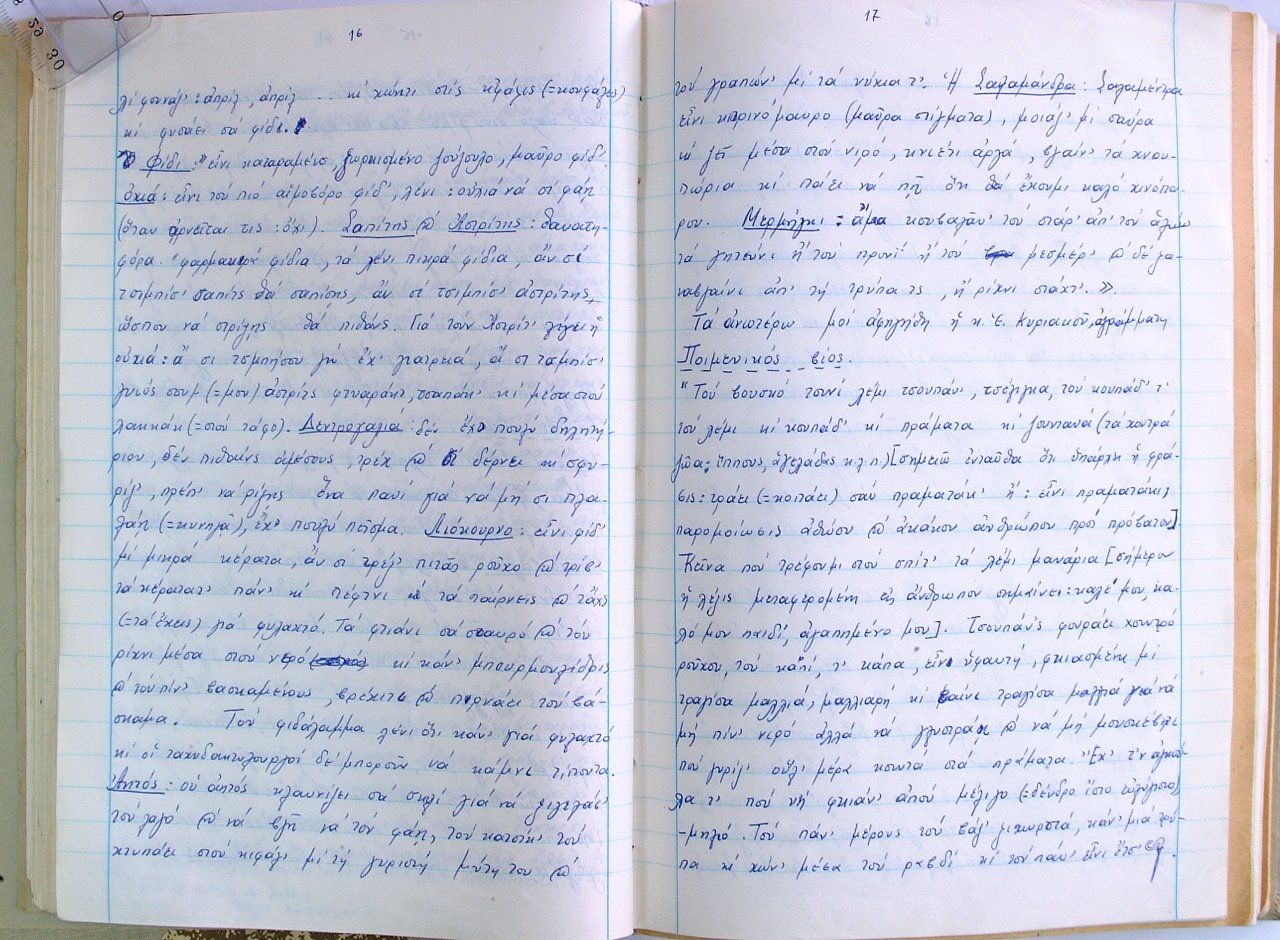 16
κι φυσάει σά φίδι.
Φίδι: "εἶνι καταραμένο, ξωρκισμένο ζούζουλο, μαῦρο φίδ'.
ὀχιά: εἶνι τοὐ πιό αἱμοβόρο φίδ', λένι: οὐχιά νά σί φάῃ
(ὅταν ἀρνεῖται τις: ὄχι). Σαπίτης & Ἀστρίτης: θανατη-
φόρα. φαρμακιρά φίδια, τά λένι πικρά φίδια, ἄν σί
τσιμπίσ' σαπίτς θά σαπίσῃς, ἄν σί τσιμπίσ' ἀστρίτης,
ὥσπου νά στρίψῃς θά πιθάνῃς. Γιά τόν Ἀστρίτ' λέγει ἡ
οὐχιά: ἄ σι τσμπήσου γώ ἔχ' γιατρειά, ἄ σι τσμπίσ'
γυιός σουμ (=μου) ἀστρίτς φτυαράκ', τσαπάκ' κι μέσα στού
λακκάκ (=στού τάφο). Δεντρογαλιά: δέν ἔχ πουλύ δηλητή-
ριου, δέν πιθαίνς ἀμέσους, τρέχ & σί δέρνει κι σφυ-
ρίζ', πρέπ' νά ρίξῃς ἕνα πανί γιά νά μή σι
(=κυνηγᾷ), ἔχ' πουλύ πεῖσμα. Λιόκουρνο: εἶνι φίδ'
μί μικρά κέρατα, ἄν σί τρέξ' πιτᾷς ροῦχο & τρίβ'
τά κέρατατ' πάν' κι πέφτνι κι τά παίρνεις & τἄχς
(=τά ἔχεις) γιά φυλαχτό. Τά φτιάνι σά σταυρό & τόν
ρίχνι μέσα στού νερό κι κάν' μπουρμπουλίδις
& τού πίν' βασκαμένους, βρέχιτι & πιρνάει τού βά-
σκαμα. Τού φιδόλαμμα λένι ὅτι κάν' γιά φυλαχτό
κι οἱ ταχυδακτυλουργοί δέ μποροῦν νά κάμνι τίποντα.
Ἀητός: οὐ ἀητός κλαυνίζει σά σκλί γιά νά ξιγελάσ'
τού λαγό & νά βγῆ νά τόν φάῃ, τού κατσίκ' τού
χτυπάει στού κιφάλι μί τή γυριστή μύτη του &
17
τού γραπών' μί τά νύχια τ'. Ἡ Σαλαμάνδρα: Σαλαμέντρα
εἶνι κιτρινόμαυρο (μαῦρα στίγματα), μοιάζ' μί σαύρα
κι ζεῖ μέσα στού νιρό, κνιέτι ἀργά, βγαίν' τά χνου-
πώρια κι πάει νά πῇ ὅτι θά ἔχουμι καλό χινόπω-
ρου. Μερμήγκι: ἅμα κουβαλᾶν' τού στάρ' ἀπ' τού ἁλών
τά γητεύνι ἤ τού πρωνί ἤ τού μεσμέρ' & δέ ξα-
ναβγαίνι ἀπ' τή τρύπα τς, ἤ ρίχνι στάχτ'.».
Τά ἀνωτέρω μοί ἀφηγήθη ἡ κ. Ἑ. Κυριακοῦ, ἀγράμματη
Ποιμενικός βίος.
"Τού βουσκό τουνί λέμι τσουπάν', τσέλιγκα, τού κουπάδ' τ'
τού λέμι κι κουπάδ' κι πράματα κι ζουντανά (τά χοντρά
ζῶα: ἵππους, ἀγελάδας κ.λ.π.) [σημειῶ ἐνταῦθα ὅτι ὑπάρχει ἡ φρά-
σις: τράει (=κοιτάει) σάν πραματάκ' ἤ: εἶνι πραματάκι,
παρομοίωσις ἀθώου & ἀκάκου ἀνθρώπου πρός πρόβατον]
Κεῖνα πού τρέφουμι στού σπίτ' τά λέμι μανάρια [σήμερον
ἡ λέξις μεταφερομένη εἰς ἄνθρωπον σημαίνει: καλέ μου, κα-
λό μου παιδί, ἀγαπημένο μου]. Τσουπάν'ς φουράει χουντρό
ροῦχου, τού καπί, τ' κάπα, εἶνι ὑφαντή, φκιασμένη μί
τραγίσα μαλλιά, μαλλιαρή κι βαίνι τραγίσα μαλλιά γιά νά
μή πίν' νιρό ἀλλά νά γλυστράει & νά μή μουσκέβητι
πού γυρίζ' οὕλ' μέρα κουντα στά πράματα. Ἔχ' τ'ν ἀγκού-
λα τ' πού νή φκιάν' ἀπού μέλιγο (=δένδρο
-μηλιό. Τού πάν' μέρους τού βάζ' ξιχωριστά, κάν' μιά τρύ-
πα κι χών' μέσα τού ραβδί κι τού πάν' εἶνι ἔτσι